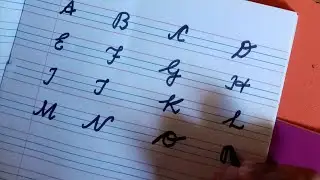 A B C D
E F G H
I J K L
M N O